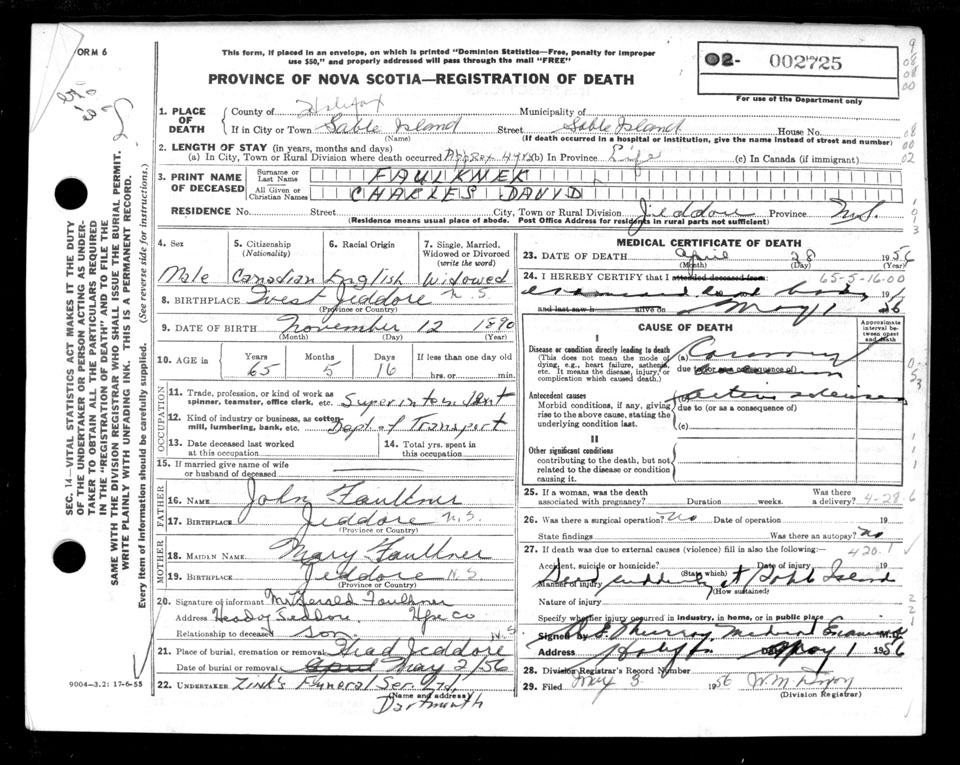 FORM 6
This form, if placed in an envelope, on which is printed "Dominion Statistics—Free, penalty for improper
use $50," and properly addressed will pass through the mail "FREE"
02- 002725
For use of the Department only
PROVINCE OF NOVA SCOTIA—REGISTRATION OF DEATH
1. PLACE OF DEATH
County of Halifax Municipality of
If in City or Town Sable Island Street Sable Island House No.
(Name) (If death occurred in a hospital or institution, give the name instead of street and number)
2. LENGTH OF STAY (in years, months and days)
(a) In City, Town or Rural Division where death occurred Approx 4 yrs (b) In Province Life (c) In Canada (if immigrant)
3. PRINT NAME OF DECEASED
Surname or Last Name FAULKNER
All Given or Christian Names CHARLES DAVID
RESIDENCE No. Street City, Town or Rural Division Jeddore Province N.S.
(Residence means usual place of abode. Post Office Address for residents in rural parts not sufficient)
4. Sex Male
5. Citizenship (Nationality) Canadian
6. Racial Origin English
7. Single, Married, Widowed or Divorced (write the word) Widowed
8. BIRTHPLACE West Jeddore N.S.
(Province or Country)
9. DATE OF BIRTH November 12 1890
(Month) (Day) (Year)
10. AGE in Years 65 Months 5 Days 16 If less than one day old hrs. or min.
OCCUPATION
11. Trade, profession, or kind of work as spinner, teamster, office clerk, etc. Superintendent
12. Kind of industry or business, as cotton-mill, lumbering, bank, etc. Dept of Transport
13. Date deceased last worked at this occupation
14. Total yrs. spent in this occupation
15. If married give name of wife or husband of deceased
FATHER
16. NAME John Faulkner
17. BIRTHPLACE Jeddore N.S.
(Province or Country)
MOTHER
18. MAIDEN NAME Mary Faulkner
19. BIRTHPLACE Jeddore N.S.
(Province or Country)
20. Signature of informant Mr Gerald Faulkner
Address Head Jeddore. Hfx Co N.S
Relationship to deceased Son
21. Place of burial, cremation or removal Head Jeddore
Date of burial or removal April May 2/56
22. UNDERTAKER Zink's Funeral Ser. Ltd,
(Name and address)
Dartmouth
9004—3.2: 17-6-55
MEDICAL CERTIFICATE OF DEATH
23. DATE OF DEATH April 28 1956
(Month) (Day) (Year)
24. I HEREBY CERTIFY that I attended deceased from: 65-5-16-00
examined body
and last saw h alive on May 1 56
CAUSE OF DEATH
Approximate interval between onset and death
I
Disease or condition directly leading to death
(This does not mean the mode of dying, e.g., heart failure, asthenia, etc. It means the disease, injury, or complication which caused death.)
(a) Coronary
due to (or as a consequence of)
Antecedent causes
Morbid conditions, if any, giving rise to the above cause, stating the underlying condition last.
due to (or as a consequence of)
(c)
II
Other significant conditions
contributing to the death, but not related to the disease or condition causing it.
25. If a woman, was the death associated with pregnancy? Duration weeks. Was there a delivery? 4-28-6
26. Was there a surgical operation? No Date of operation 19
State findings Was there an autopsy? No
27. If death was due to external causes (violence) fill in also the following: 420.1
Accident, suicide or homicide? Date of injury 19
(State which)
Died suddenly at Sable Island
Manner of injury (How sustained)
Nature of injury
Specify whether injury occurred in industry, in home, or in public place
Signed by Murray, Medical Examiner M.D.
Address Halifax Date May 1 1956
28. Division Registrar's Record Number
29. Filed May 3 1956 W. M. Dixon
(Division Registrar)
SEC. 14—VITAL STATISTICS ACT MAKES IT THE DUTY
OF THE UNDERTAKER OR PERSON ACTING AS UNDER-
TAKER TO OBTAIN ALL THE PARTICULARS REQUIRED
IN THE "REGISTRATION OF DEATH" AND TO FILE THE
SAME WITH THE DIVISION REGISTRAR WHO SHALL ISSUE THE BURIAL PERMIT.
WRITE PLAINLY WITH UNFADING INK. THIS IS A PERMANENT RECORD.
Every item of information should be carefully supplied. (See reverse side for instructions.)